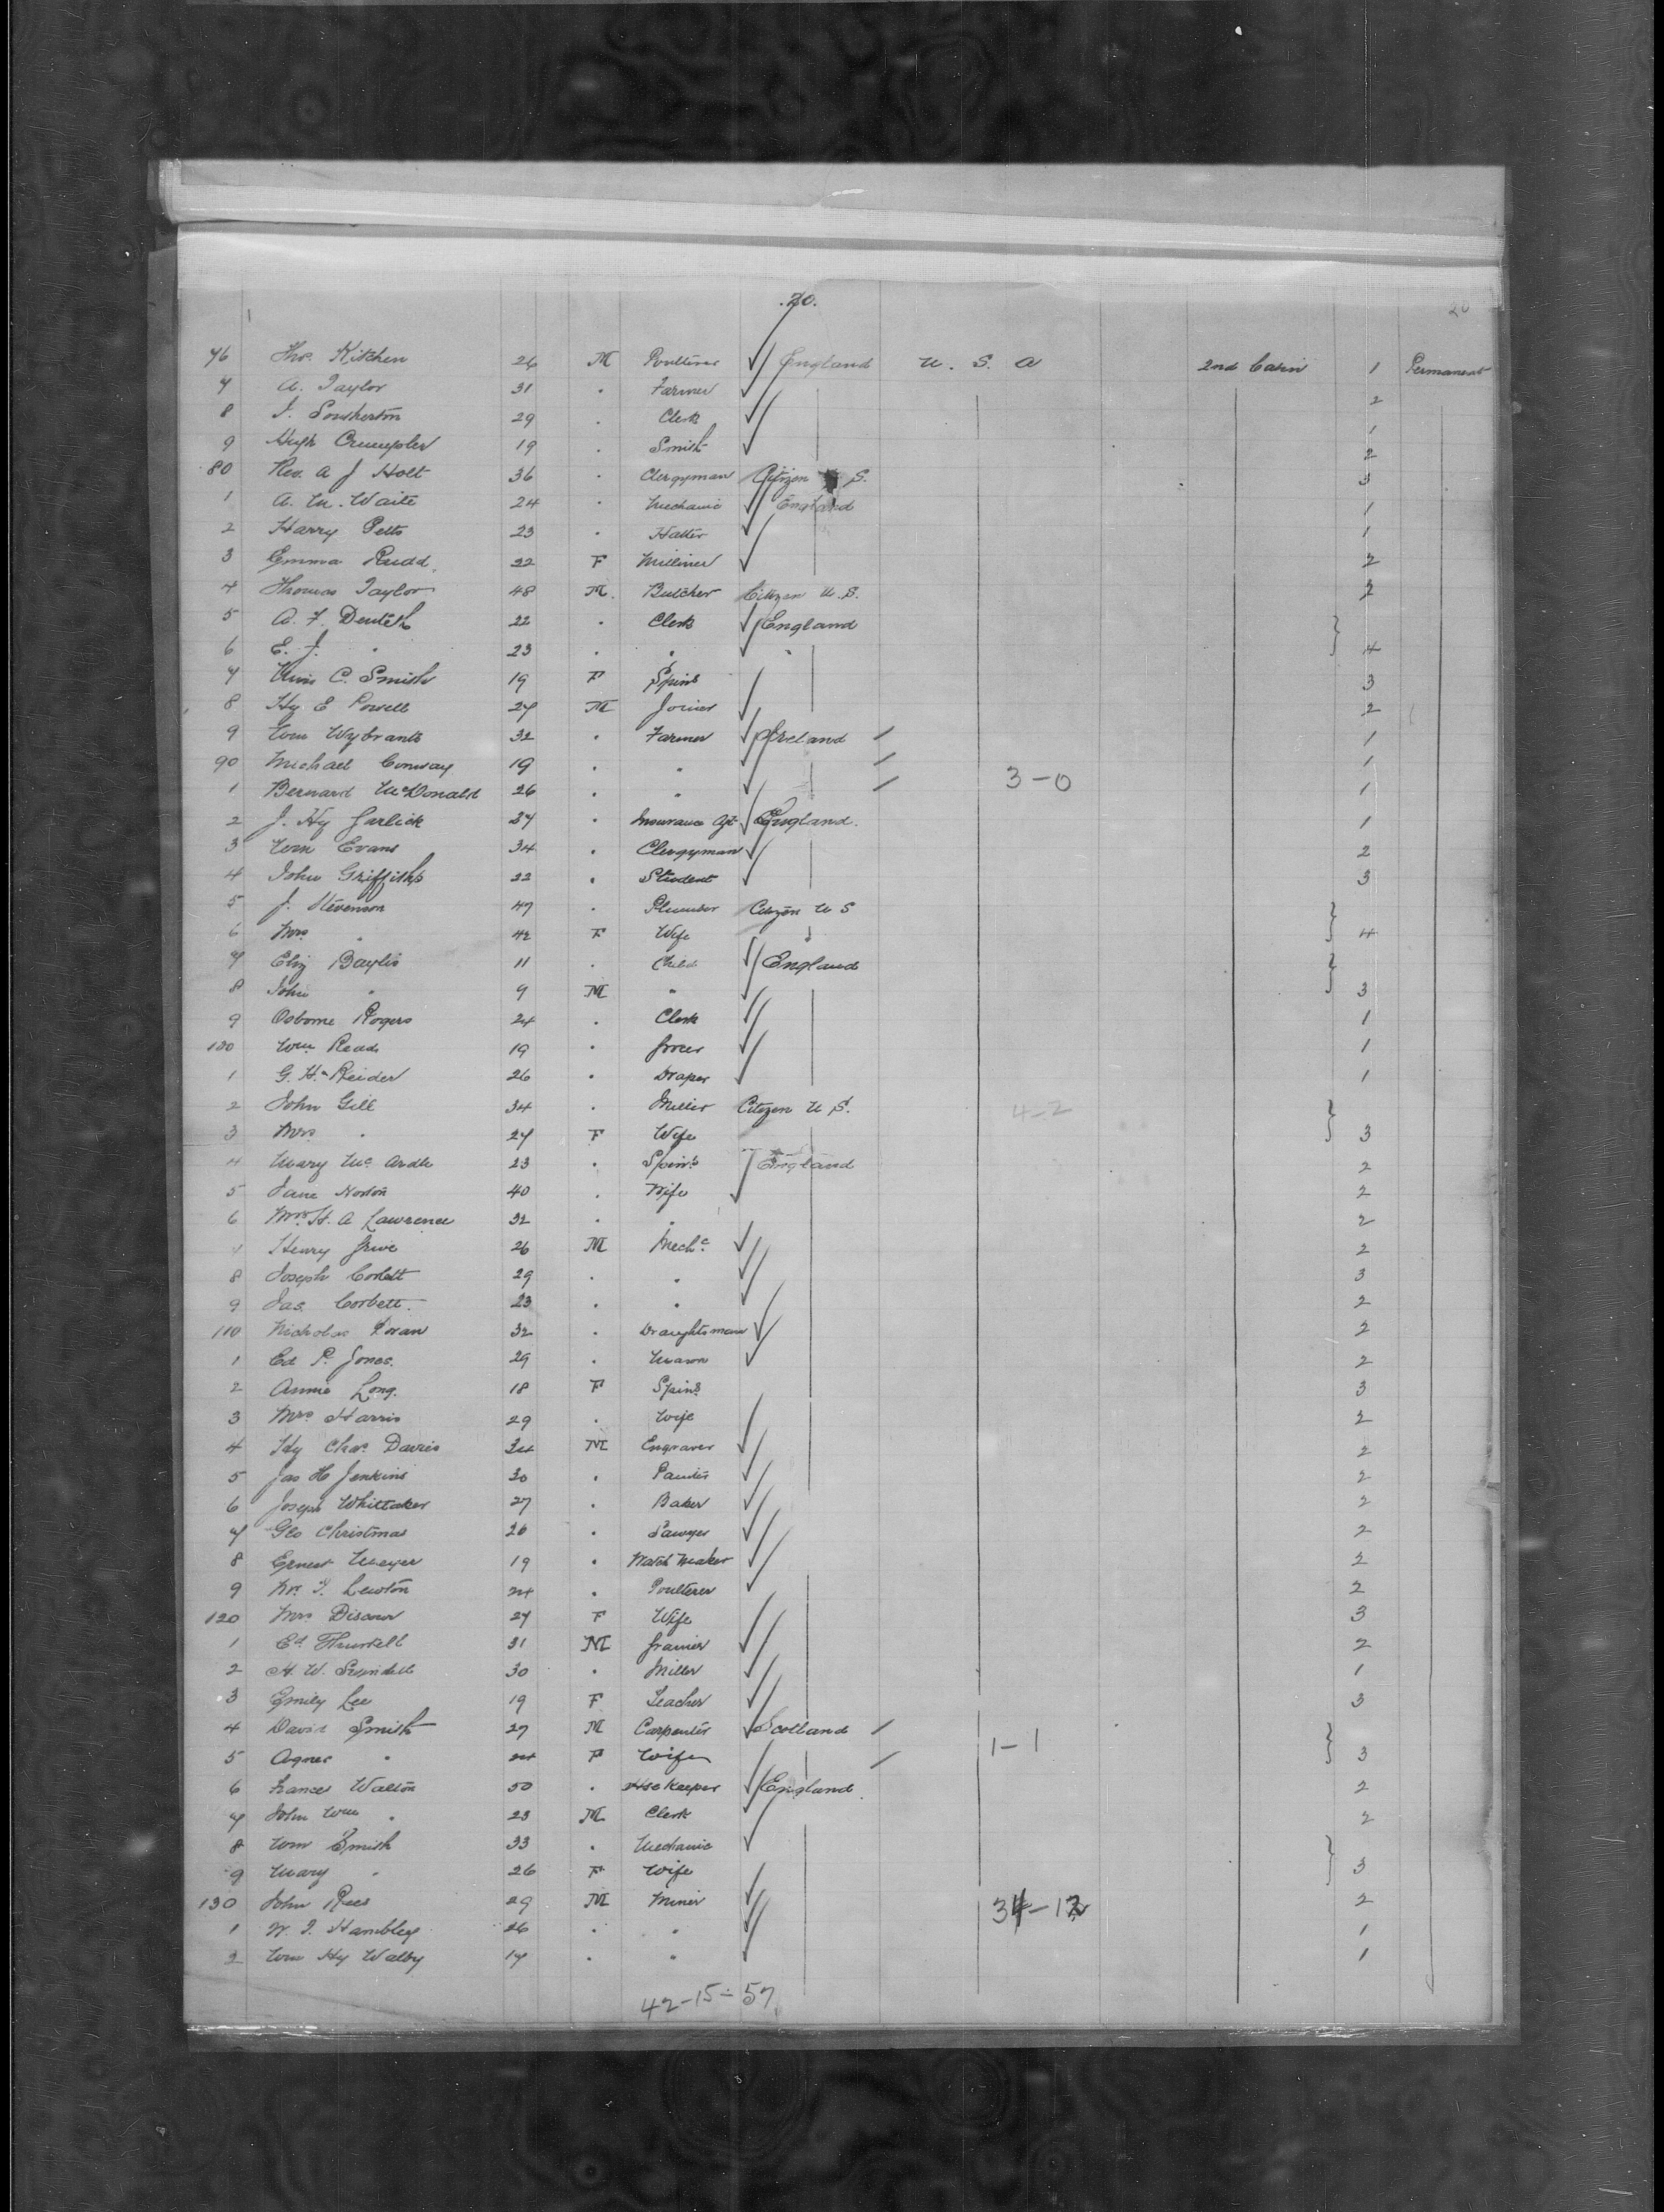 .20. 20
76 Thos. Kitchen 26 M Poulterer England U. S. A 2nd Cabin 1 Permanent
7 A. Taylor 31 . Farmer 2
8 J. 29 . Clerk 1
9 Hugh Crumpler 19 . Smith 2
80 Rev. A J Holt 36 . Clergyman Citizen S. 3
1 A. M. Waite 24 . Mechanic England 1
2 Harry Petts 23 . Hatter 1
3 Emma Rudd 22 F Milliner 2
4 Thomas Taylor 48 M. Butcher Citizen U.S. 2
5 A. F. 22 . Clerk England
6 E. J. " 23 . " " 4
7 C. Smith 19 F Spins 3
8 Hy E Powell 27 M Joiner 2
9 Wm Wybrants 32 . Farmer Ireland 1
90 Michael Conway 19 . " 1
3-0
1 Bernard McDonald 26 . " 1
2 J. Hy Garlick 27 . Insurance Agt England. 1
3 Wm Evans 34 . Clergyman 2
4 John Griffiths 22 . Student 3
5 J. Stevenson 47 . Plumber Citizen U S
6 Mrs " 42 F Wife 4
7 Eliz Baylis 11 . Child England
8 John " 9 M " 3
9 Osborne Rogers 24 . Clerk 1
100 Wm Read 19 . Grocer 1
1 G. H. Reider 26 . Draper 1
2 John Gill 34 . Miller Citizen U S. 4-2
3 Mrs " 27 F Wife 3
4 Mary McArdle 23 . Spins England 2
5 Jane Norton 40 . Wife 2
6 Mrs H. A Lawrence 32 . " 2
7 Henry 26 M Mechc 2
8 Joseph Corbett 29 . " 3
9 Jas. Corbett. 23 . " 2
110 Nicholas Doran 32 . Draughtsman 2
1 Ed P. Jones. 29 . Mason 2
2 Annie Long. 18 F Spins 3
3 Mrs Harris 29 . Wife 2
4 Hy Chas Davies 34 M Engraver 2
5 Jas H Jenkins 30 . Painter 2
6 Joseph Whittaker 27 . Baker 2
7 Geo Christmas 26 . Sawyer 2
8 Ernest Meyer 19 . Watch Maker 2
9 T. Lewton 24 . Poulterer 2
120 Mrs 27 F Wife 3
1 Ed Thurkell 31 M 2
2 H. W. Swindell 30 . Miller 1
3 Emily Lee 19 F Teacher 3
4 David Smith 27 M Carpenter Scotland
1-1
5 Agnes " 24 F Wife 3
6 Frances Walton 50 . Hse Keeper England. 2
7 John Wm " 23 M Clerk 2
8 Wm Smith 33 . Mechanic
9 Mary " 26 F Wife 3
130 John Rees 29 M Miner 2
1 W. J. Hambley 26 . " 1
2 Wm Hy Walby 17 . " 1
42-15=57